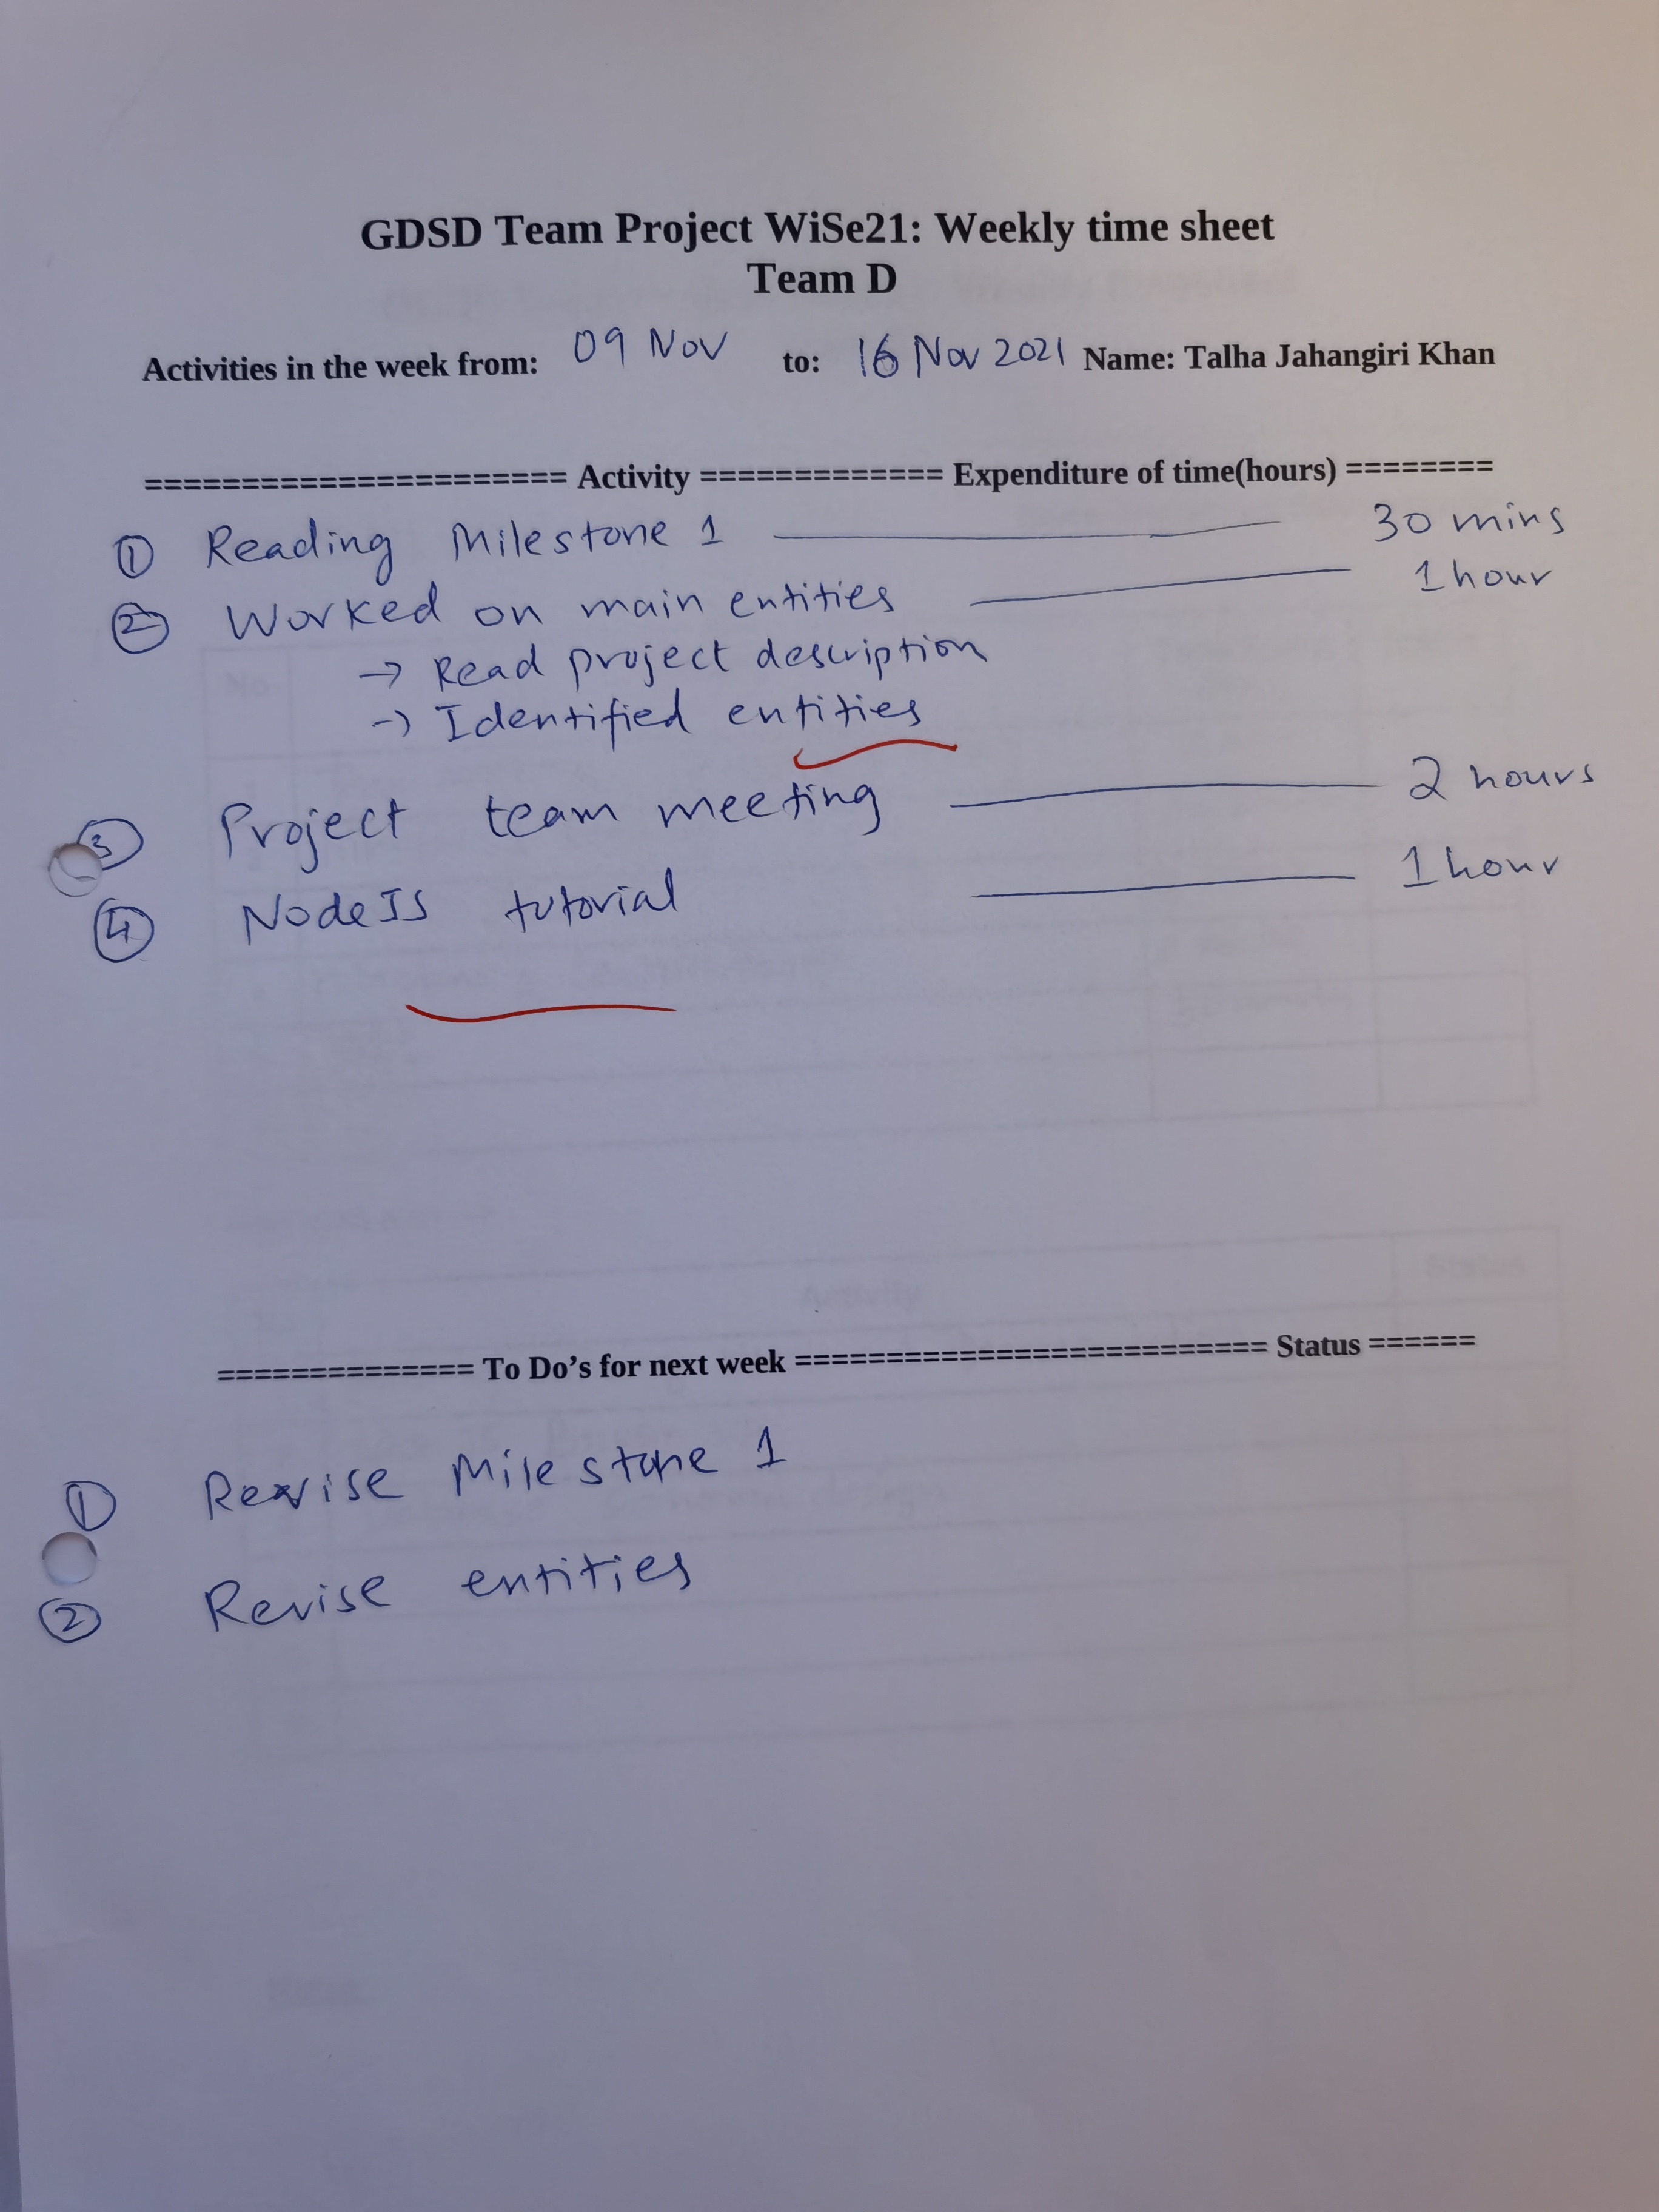 GDSD Team Project WiSe21: Weekly time sheet
Team D
Activities in the week from: 09 Nov to: 16 Nov 2021 Name: Talha Jahangiri Khan
====================== Activity ============= Expenditure of time(hours) ========
① Reading Milestone 1 30 mins
② Worked on main entities 1 hour
→ Read project description
→ Identified entities
③ Project team meeting 2 hours
④ NodeJS tutorial 1 hour
============== To Do's for next week ========================== Status ======
① Revise Milestone 1
② Revise entities